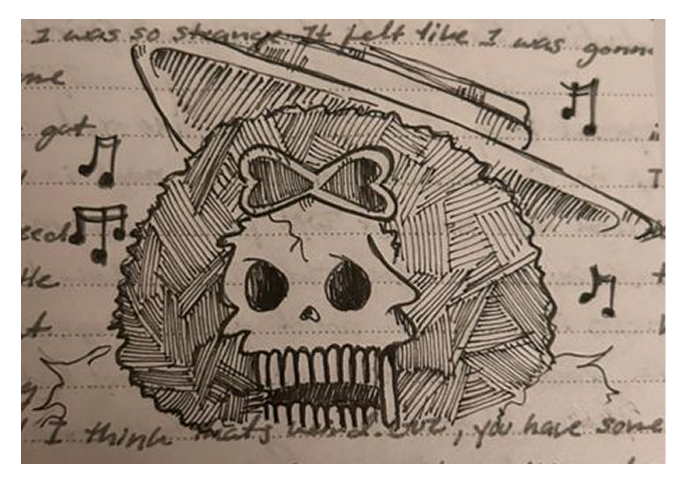 I was so strange It felt like I was gonn
me
got
sed
He
t
I think thats weird. , you have some